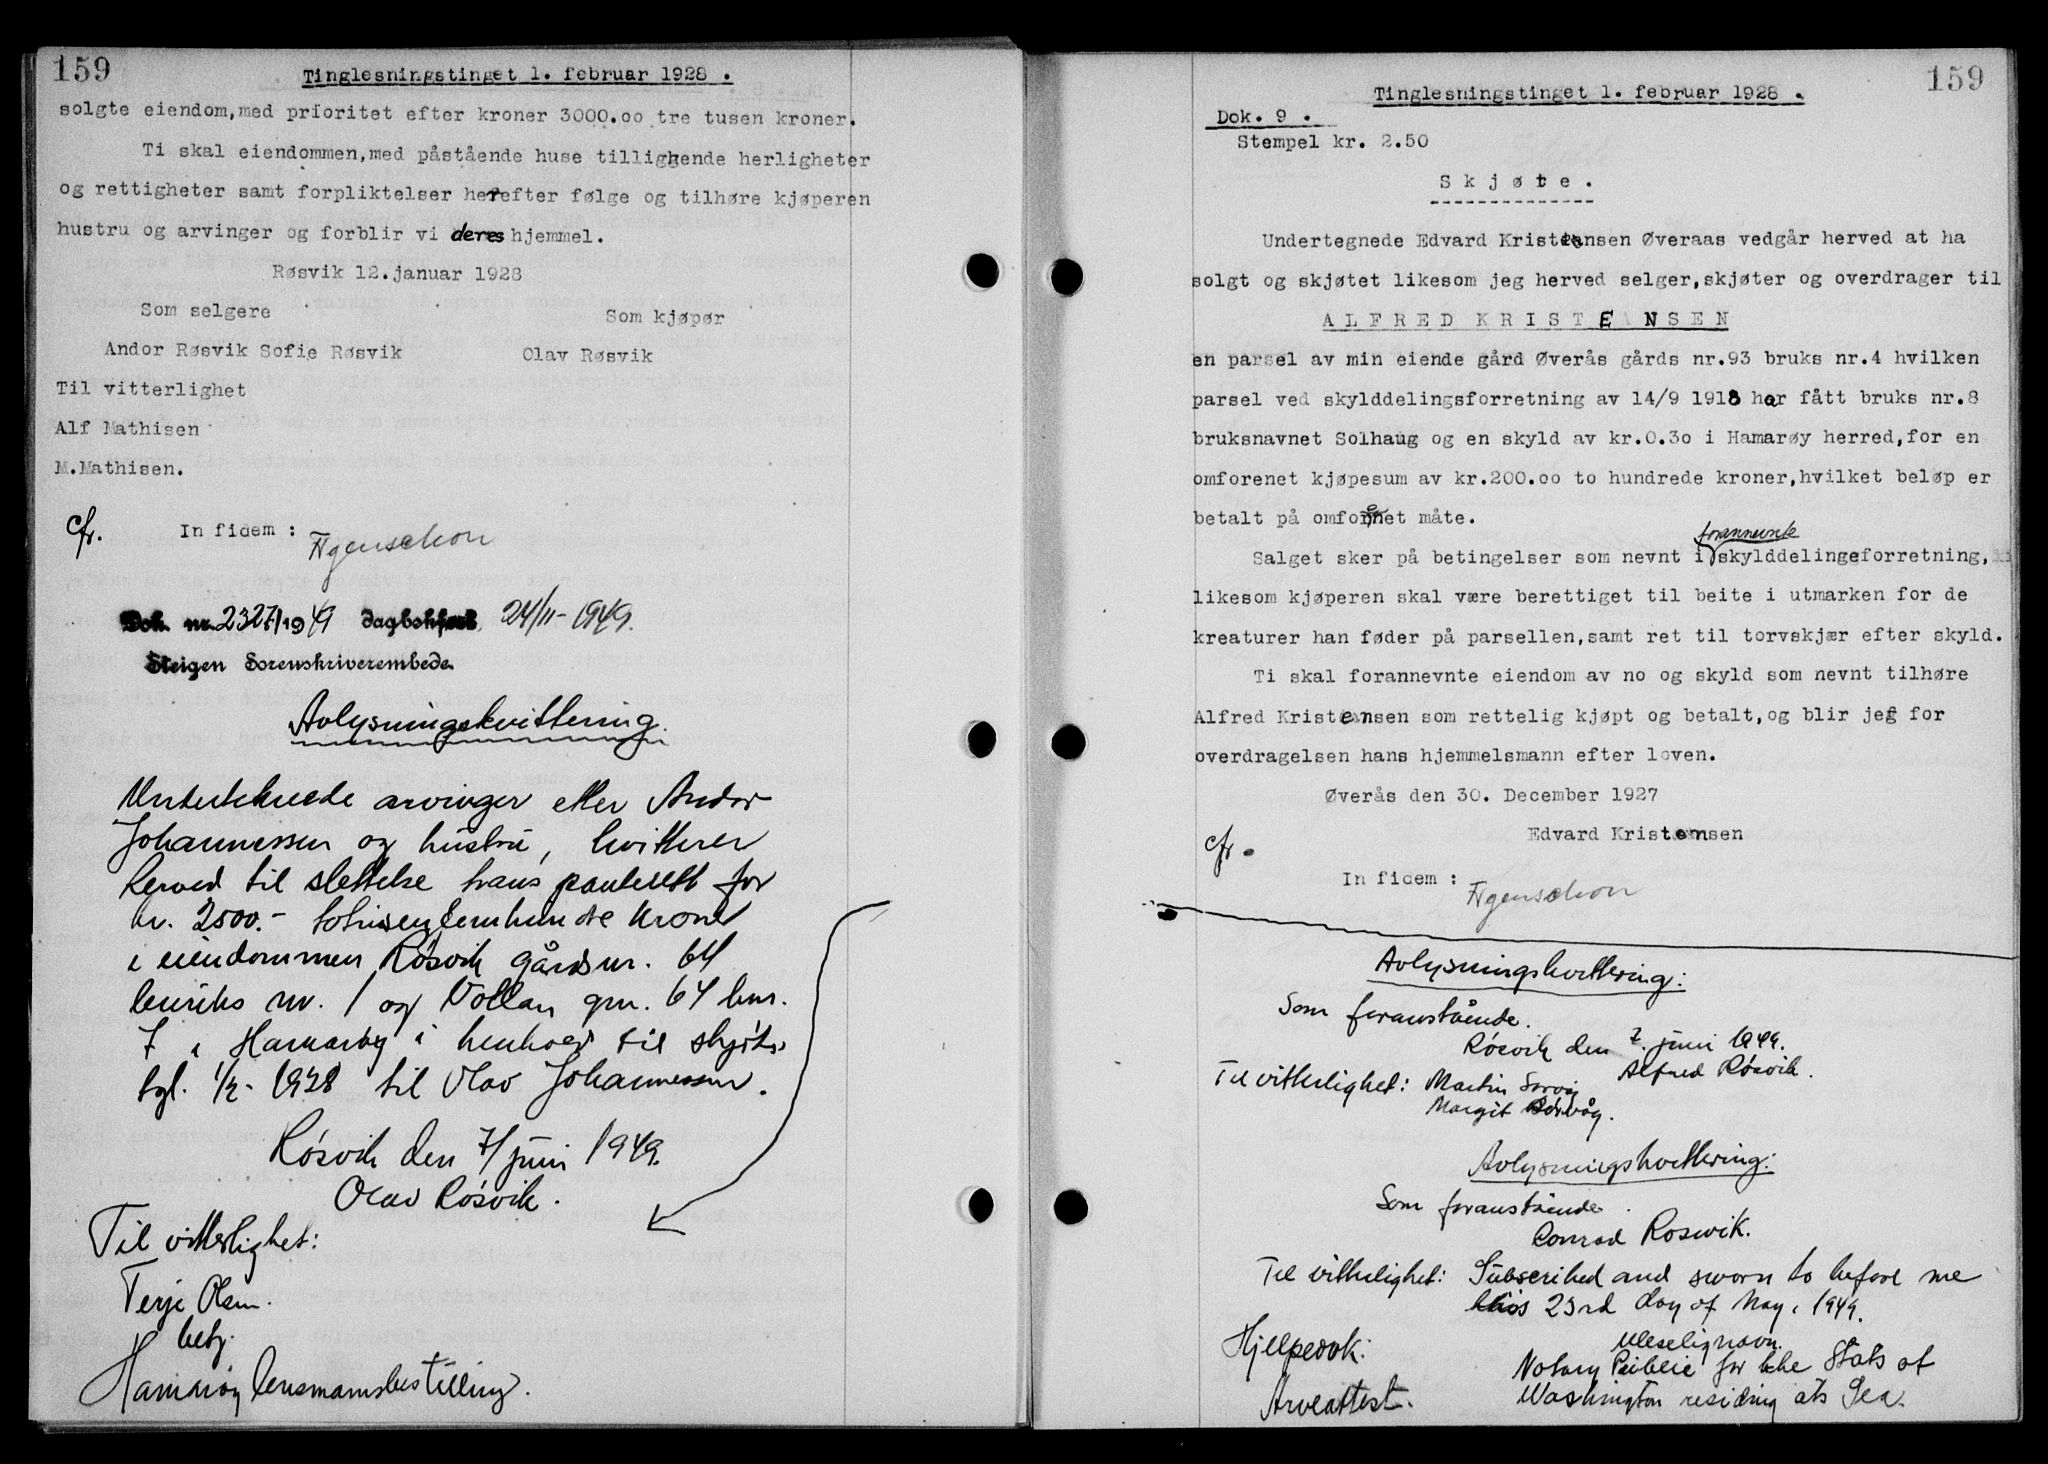 159
Tinglesningstinget 1. februar 1928 .
solgte eiendom,med prioritet efter kroner 3000.oo tre tusen kroner.
Ti skal eiendommen,med påstående huse tilliggende herligheter
og rettigheter samt forpliktelser herefter følge og tilhøre kjøperen
hustru og arvinger og forblir vi deres hjemmel.
Røsvik 12.januar 1928
Som selgere Som kjøpør
Andor Røsvik Sofie Røsvik Olav Røsvik
Til vitterlighet
Alf Mathisen
M.Mathisen.
cfr. In fidem :
Dok nr. 2327/1949 dagbokført 24/11-1949.
Steigen Sorenskriverembede.
Avlysningskvittering.
Undertegnede arvinger etter Andor
Johannessen og hustru, kvitterer
herved til slettelse hans panterett for
kr. 2500.- totusenfemhundre kroner
i eiendommen Røsvik gårdsnr. 64
bruks nr. 1 og Vollan gnr. 64 bnr.
7 i Hamarøy i henhold til skjøte
tgl. 1/2-1928 til Olav Johannessen.
Røsvik den 7/juni 1949.
Olav Røsvik.
Til vitterlighet:
Terje Olsen.
betj.
Hamarøy lensmannsbestilling.
159
Tinglesningstinget 1. februar 1928 .
Dok. 9 .
Stempel kr. 2.50
S k j ø t e .
Undertegnede Edvard Kristensen Øveraas vedgår herved at ha
solgt og skjøtet likesom jeg herved selger,skjøter og overdrager til
A L F R E D K R I S T E N S E N
en parsel av min eiende gård Øverås gårds nr.93 bruks nr.4 hvilken
parsel ved skylddelingsforretning av 14/9 1918 har fått bruks nr.8
bruksnavnet Solhaug og en skyld av kr.0.3o i Hamarøy herred,for en
omforenet kjøpesum av kr.200.oo to hundrede kroner,hvilket beløp er
betalt på omforenet måte.
forannevnte
Salget sker på betingelser som nevnt i skylddelingeforretning,
likesom kjøperen skal være berettiget til beite i utmarken for de
kreaturer han føder på parsellen,samt ret til torvskjær efter skyld.
Ti skal forannevnte eiendom av no og skyld som nevnt tilhøre
Alfred Kristensen som rettelig kjøpt og betalt,og blir jeg for
overdragelsen hans hjemmelsmann efter loven.
Øverås den 30. December 1927
Edvard Kristensen
cfr.
In fidem :
Avlysningskvittering:
Som foranstående.
Røsvik den 7. juni 1949.
Alfred Røsvik.
Til vitterlighet: Martin
Margit Sørvåg.
Avlysningskvittering:
Som foranstående.
Conrad Roswik.
Til vitterlighet: Subscribed and sworn to before me
this 23rd day of May, 1949.
Uleselig navn.
Hjelpedok: Notary Public for the State of
Arveattest. Washington residing ats Sea.